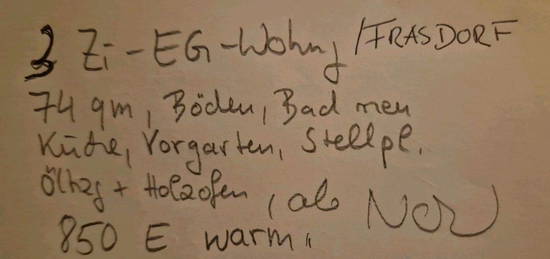 3 Zi-EG-Wohng/FRASDORF
74 qm, Böden, Bad neu
Küche, Vorgarten, Stellpl.
Ölhzg + Holzofen, ab Nov
850 E warm,